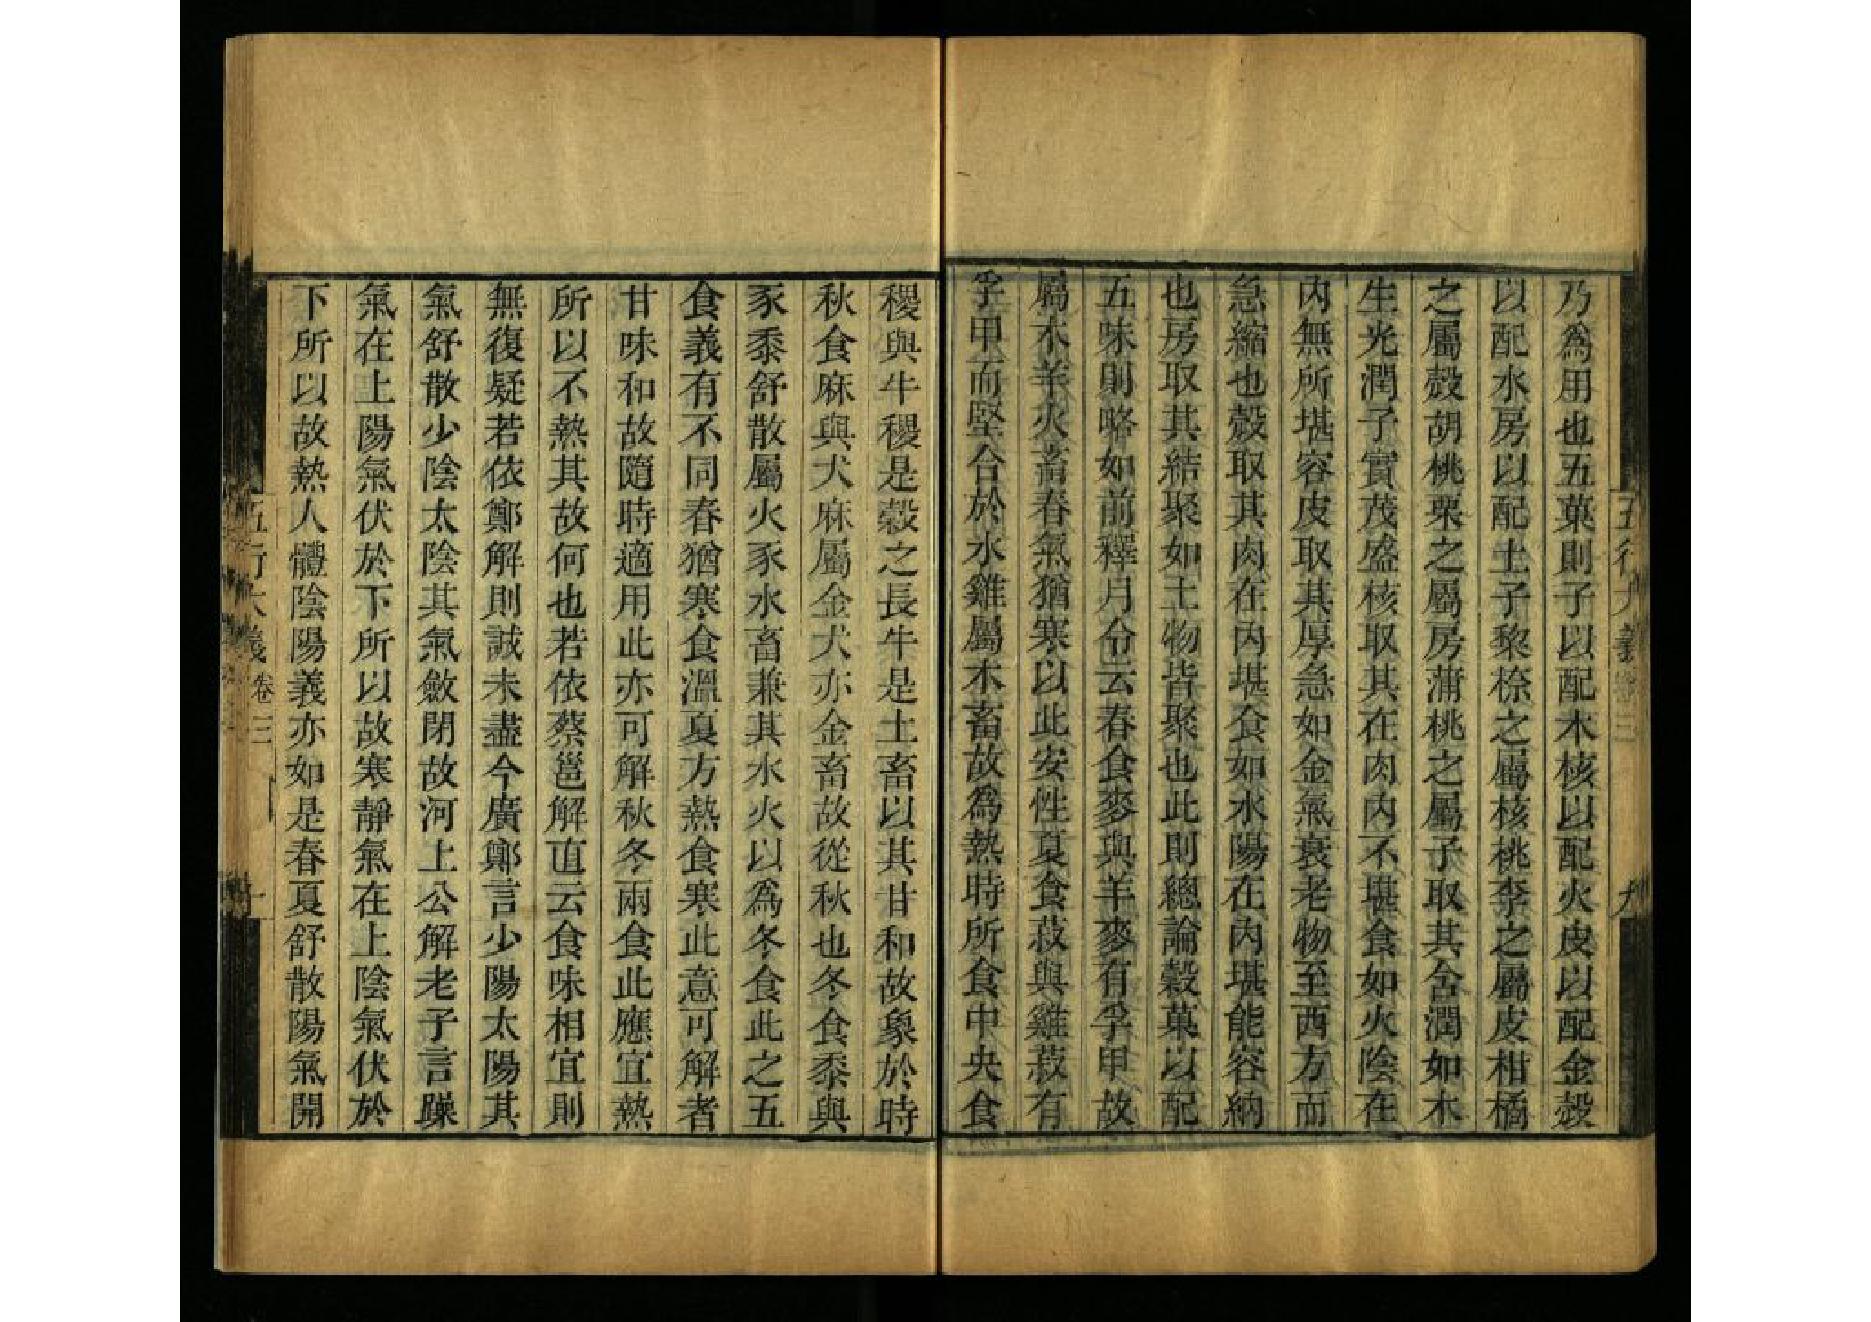 乃爲用也五菓則子以配木核以配火皮以配金殼
以配水房以配土子黎㮈之屬核桃李之屬皮柑橘
之屬殼胡桃栗之屬房蒲桃之屬子取其含潤如木
生光潤子實茂盛核取其在肉內不堪食如火陰在
內無所堪容皮取其厚急如金氣衰老物至西方而
急縮也殼取其肉在內堪食如水陽在內堪能容納
也房取其結聚如土物皆聚也此則總論穀菓以配
五味則略如前釋月令云春食麥與羊麥有孚甲故
屬木羊火畜春氣猶寒以此安性夏食菽與雞菽有
孚甲而堅合於水雞屬木畜故爲熱時所食中央食
稷與牛稷是穀之長牛是土畜以其甘和故象於時
秋食麻與犬麻屬金犬亦金畜故從秋也冬食黍與
豕黍舒散屬火豕水畜兼其水火以爲冬食此之五
食義有不同春猶寒食溫夏方熱食寒此意可解者
甘味和故隨時適用此亦可解秋冬兩食此應宜熱
所以不熱其故何也若依蔡邕解直云食味相宜則
無復疑若依鄭解則誠未盡今廣鄭言少陽太陽其
氣舒散少陰太陰其氣斂閉故河上公解老子言躁
氣在上陽氣伏於下所以故寒靜氣在上陰氣伏於
下所以故熱人體陰陽義亦如是春夏舒散陽氣開
五行大義 卷三